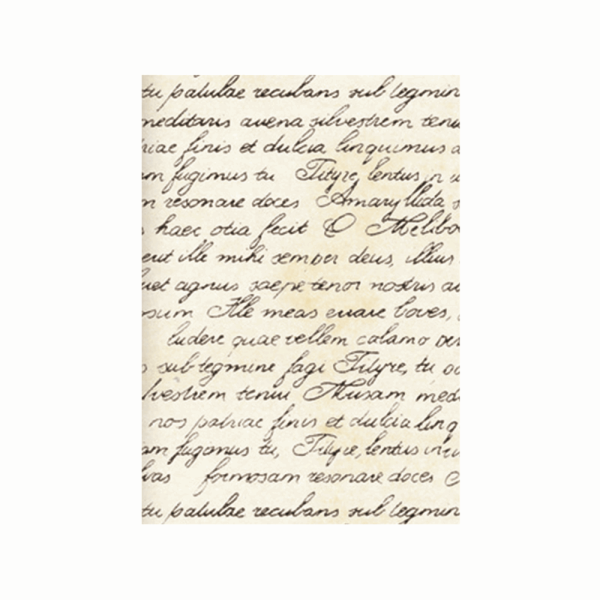 tu patulae recubans sub tegmin
meditaris avena silvestrem tenu
riae finis et dulcia linquimus a
m fugimus tu Tityre, lentus in u
m resonare doces Amaryllida s
haec otia fecit O Meliboe
erit ille mihi semper deus, illius
uet agnus saepe tenor nostris au
sum Ille meas errare boves,
ludere quae vellem calamo
s sub tegmine fagi Tityre, tu
lvestrem tenui Musam medi
nos patriae finis et dulcia linq
am fugamus tu, Tityre, lentus in
lvas formosam resonare doces
tu patulae recubans sub tegmin